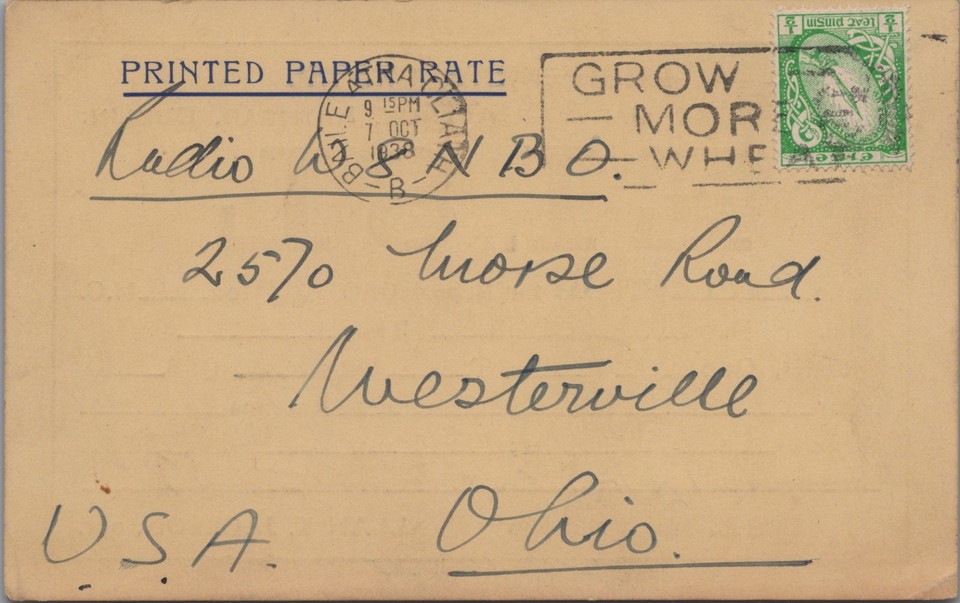 PRINTED PAPER RATE
BAILE ÁTHA CLIATH
9 15PM
7 OCT
1938
B
GROW
MORE
WHEAT
LEAṪ PINGIN
½ ½
éire
Radio W 8 N B O.
2570 Morse Road.
Westerville
Ohio.
U.S.A.